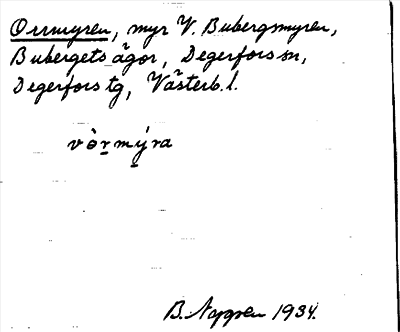 Orrmyren, myr V. Bubergsmyren,
Bubergets ägor, Degerfors sn,
Degerfors tg, Västerb. l.
vòrmýra
B. 1934.